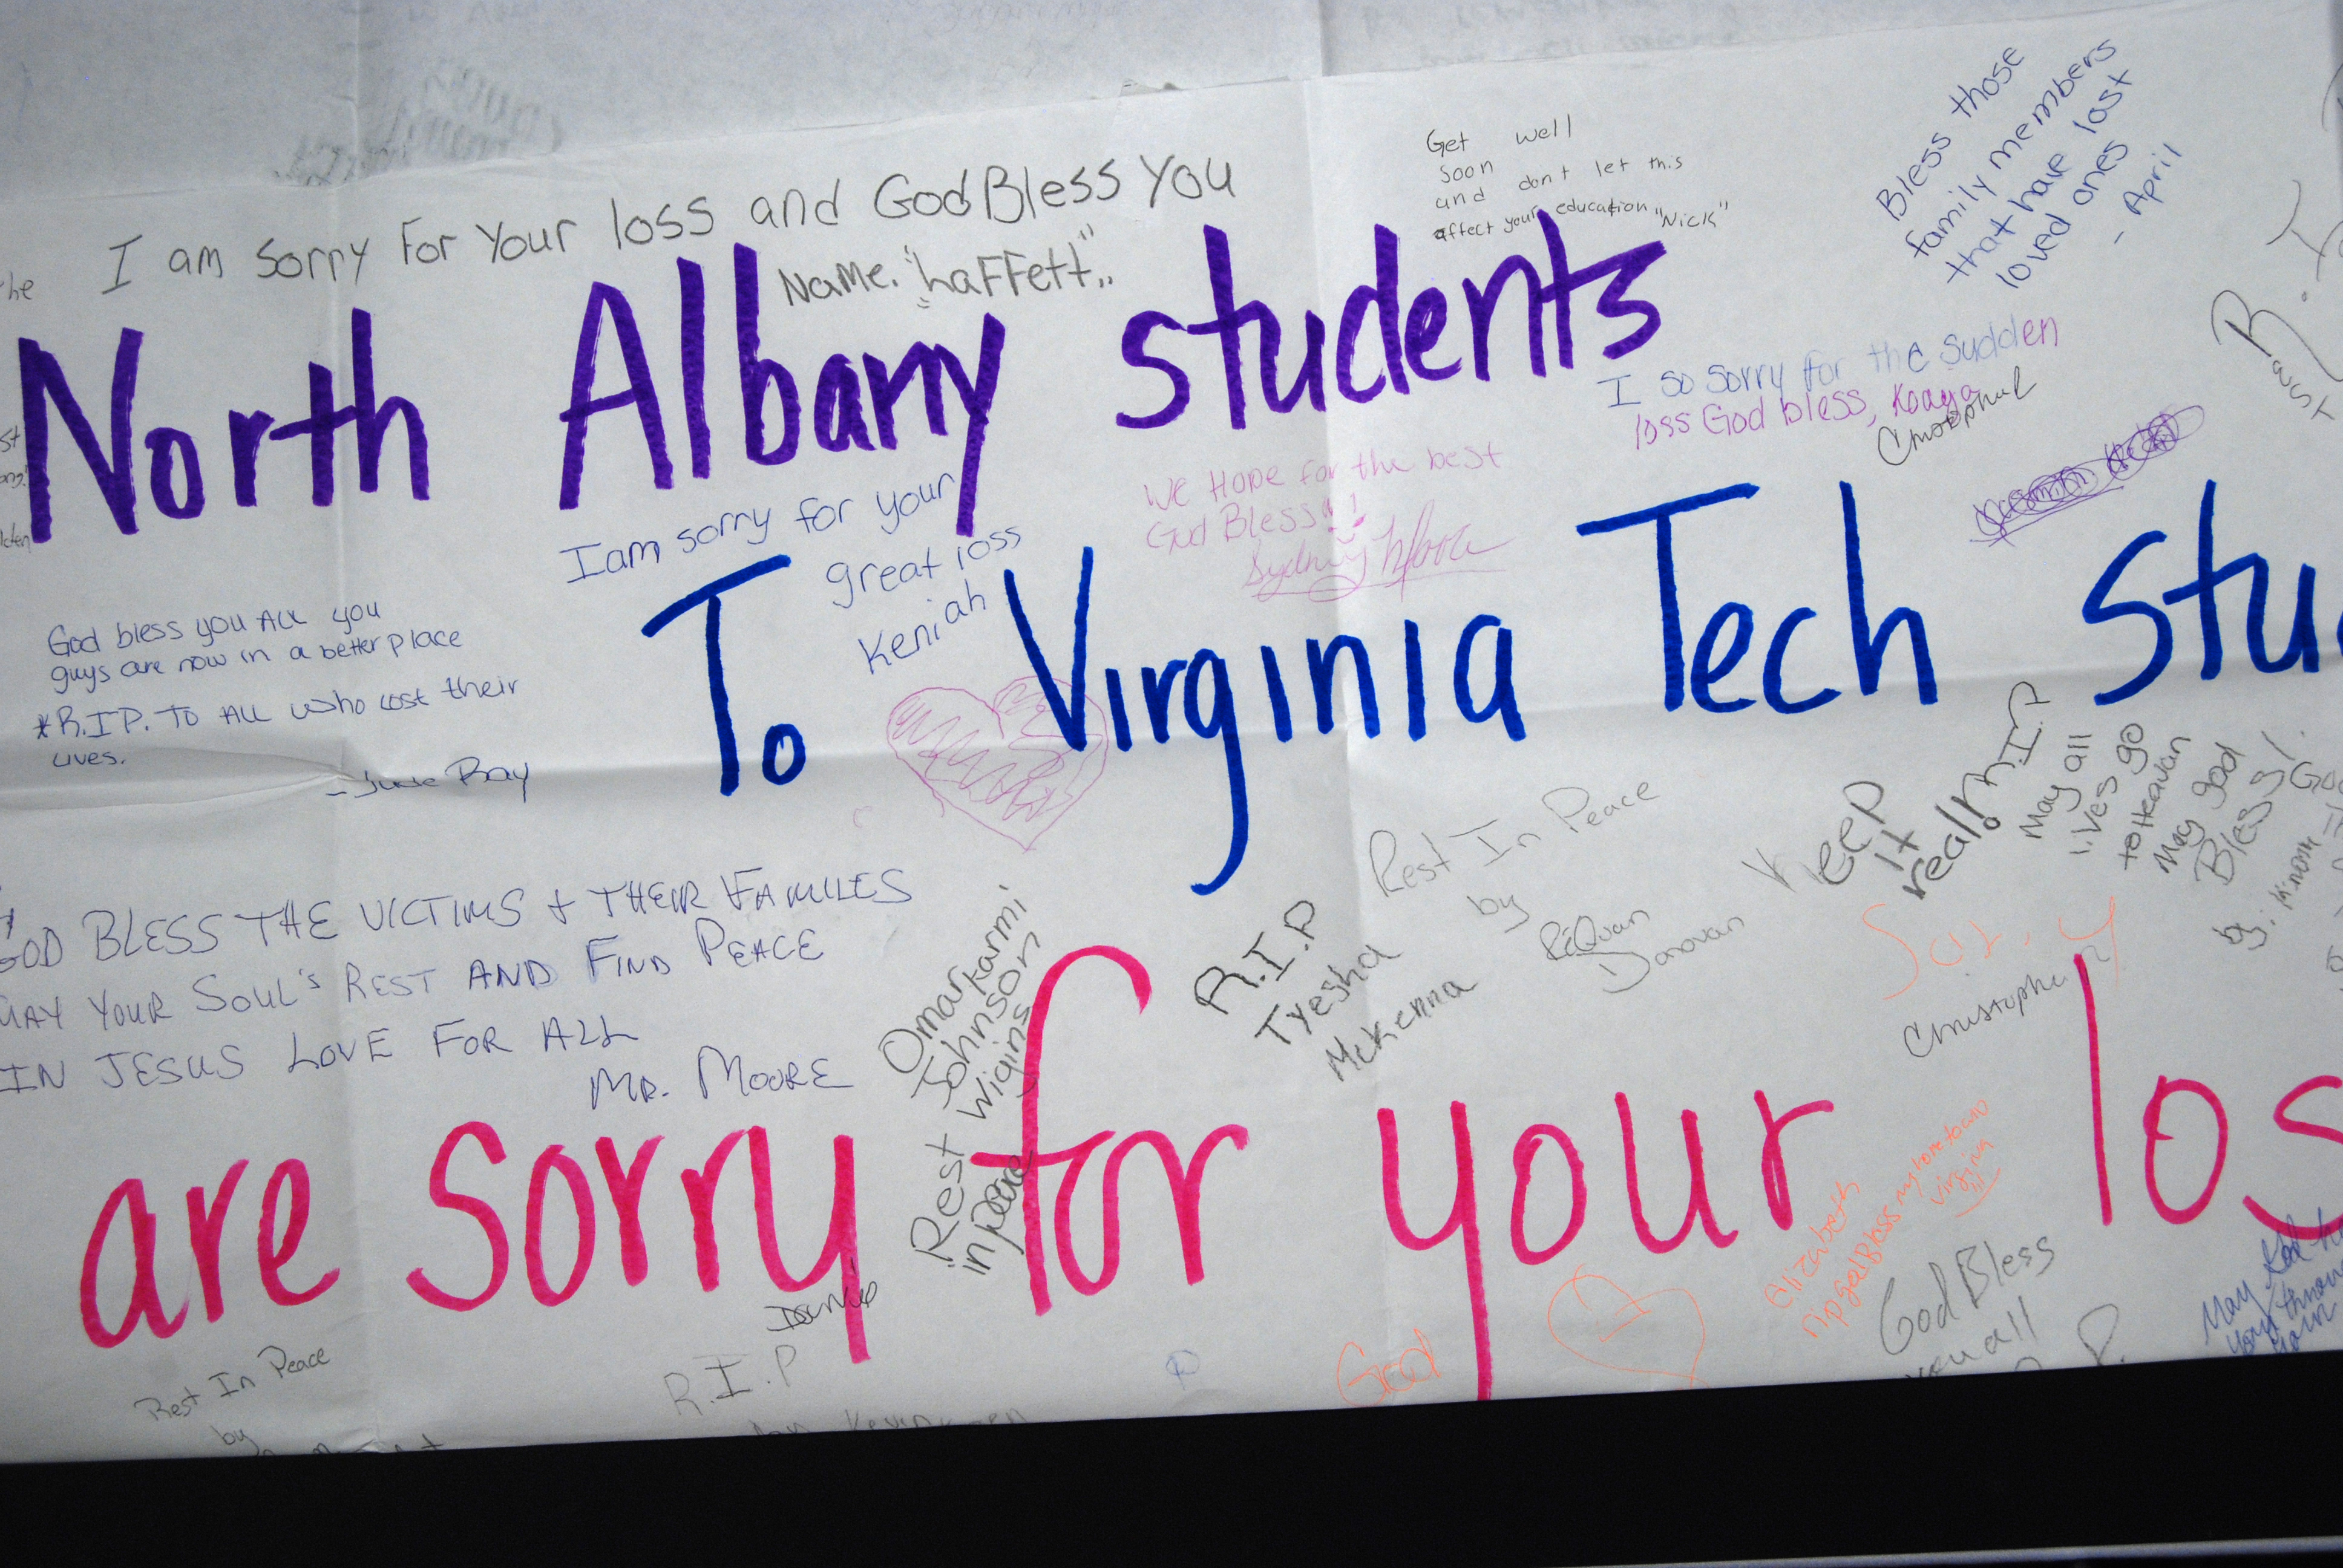 I am sorry For Your loss and God Bless You
Name. "LaFFett"
Get well
soon
and don't let this
affect your education "Nick"
Bless those
family members
that have lost
loved ones
- April
North Albany students
I so sorry for the sudden
loss God bless, Koaya
I am sorry for your
great loss
Keniah
We Hope for the best
God Bless!!
Sydney
To Virginia Tech stu
God bless you ALL you
guys are now in a better place
*R.I.P. To ALL who lost their
lives.
Ray
GOD BLESS THE VICTIMS + THEIR FAMILIES
MAY YOUR SOUL'S REST AND FIND PEACE
IN JESUS LOVE FOR ALL
MR. MOORE
Omar Karmi
Johnson
Wigins
Rest
in peace
R.I.P
Tyesha
McKenna
Rest In Peace
by
ReQuan
Donovan
Keep
it
real
R.I.P
May all
lives go
to Heavan
May god
Bless
Christopher
are sorry for your los
Elizabeth
rip god Bless my love to
Virgina
God Bless
you all
God
Rest In Peace
by
R.I.P